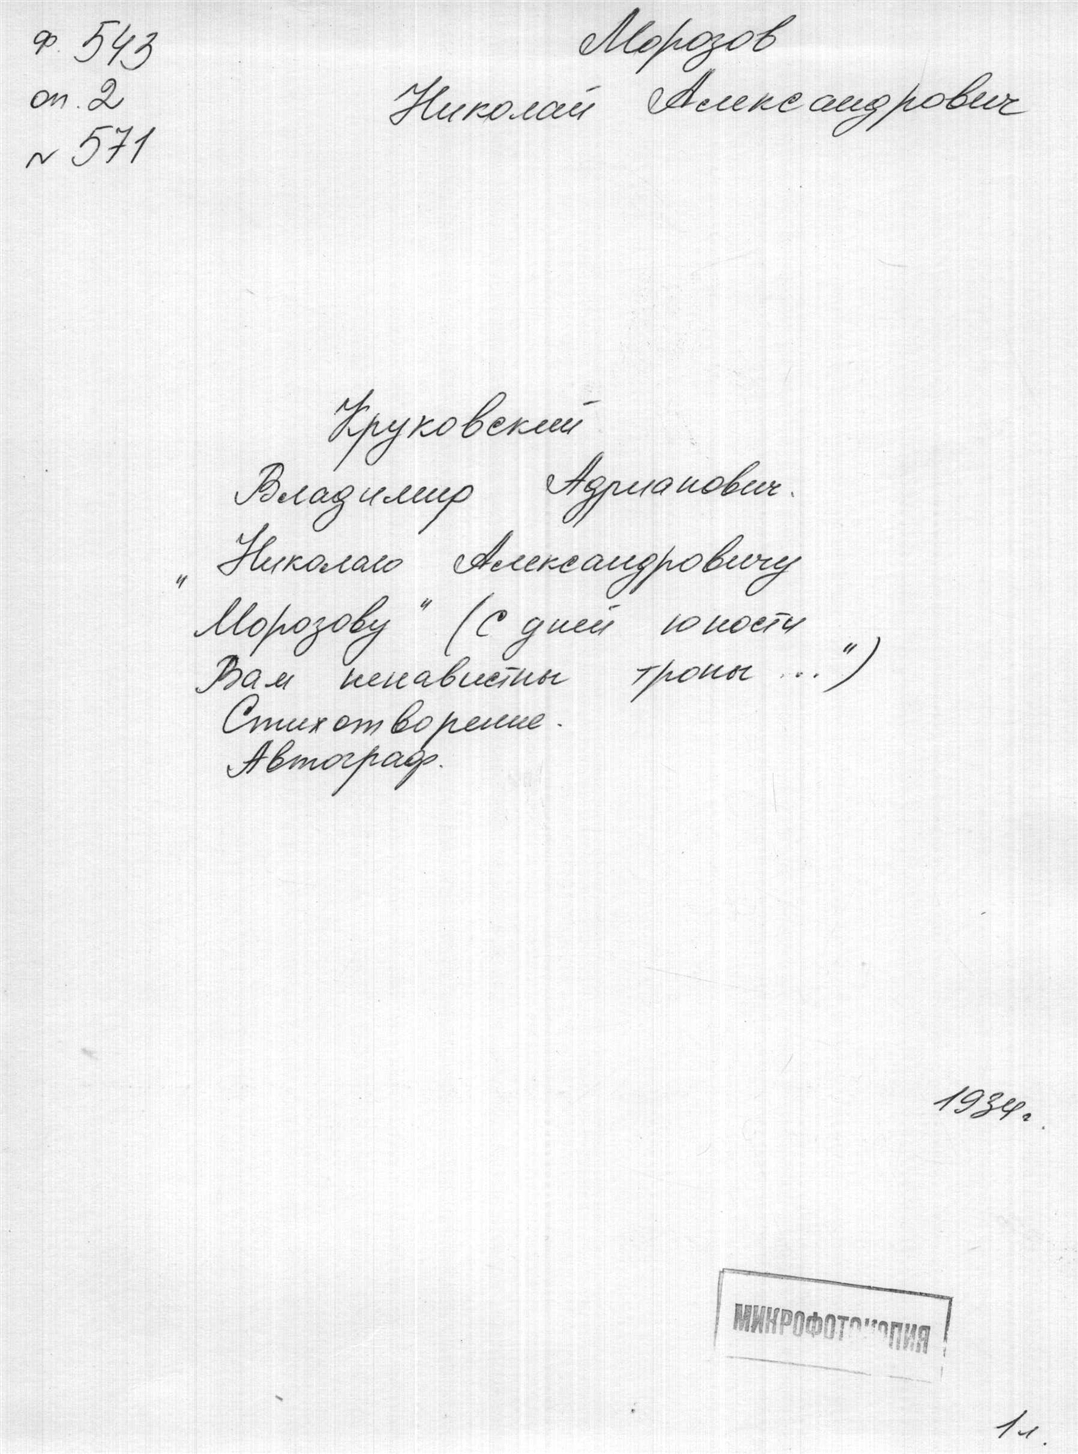 ф. 543
оп. 2
N 571
Морозов
Николай Александрович
Круковский
Владимир Адрианович.
"Николаю Александровичу
Морозову" (С дней юности
Вам ненавистны троны ...")
Стихотворение.
Автограф.
1934 г.
МИКРОФОТОКОПИЯ
1 л.